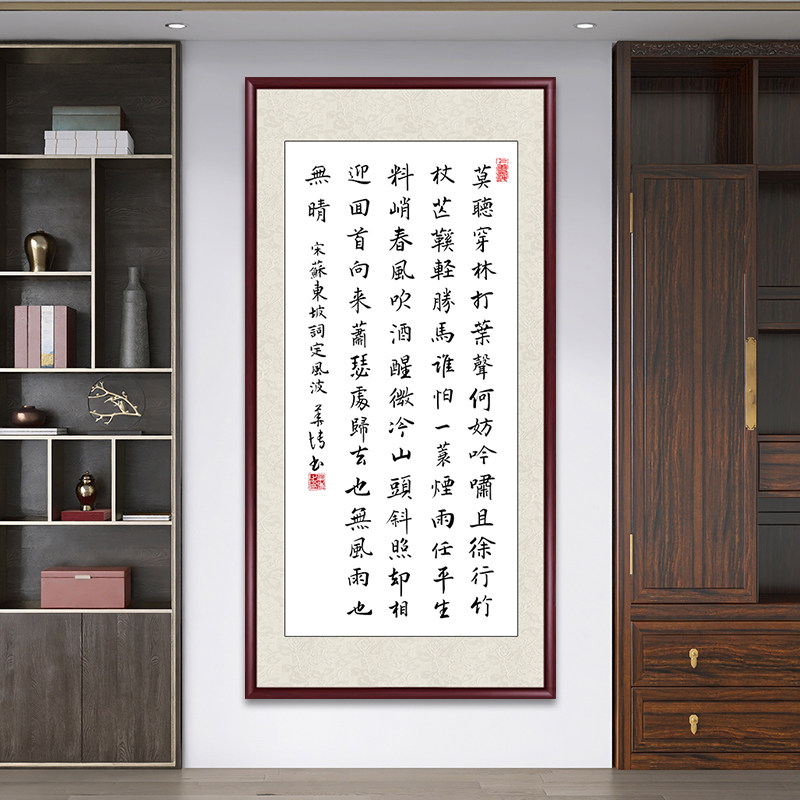 莫聴穿林打葉聲何妨吟嘯且徐行竹
杖芒鞵軽勝馬谁怕一蓑煙雨任平生
料峭春風吹酒醒微冷山頭斜照却相
迎囬首向来蕭瑟處歸去也無風雨也
無晴
宋蘇東坡詞定風波 书